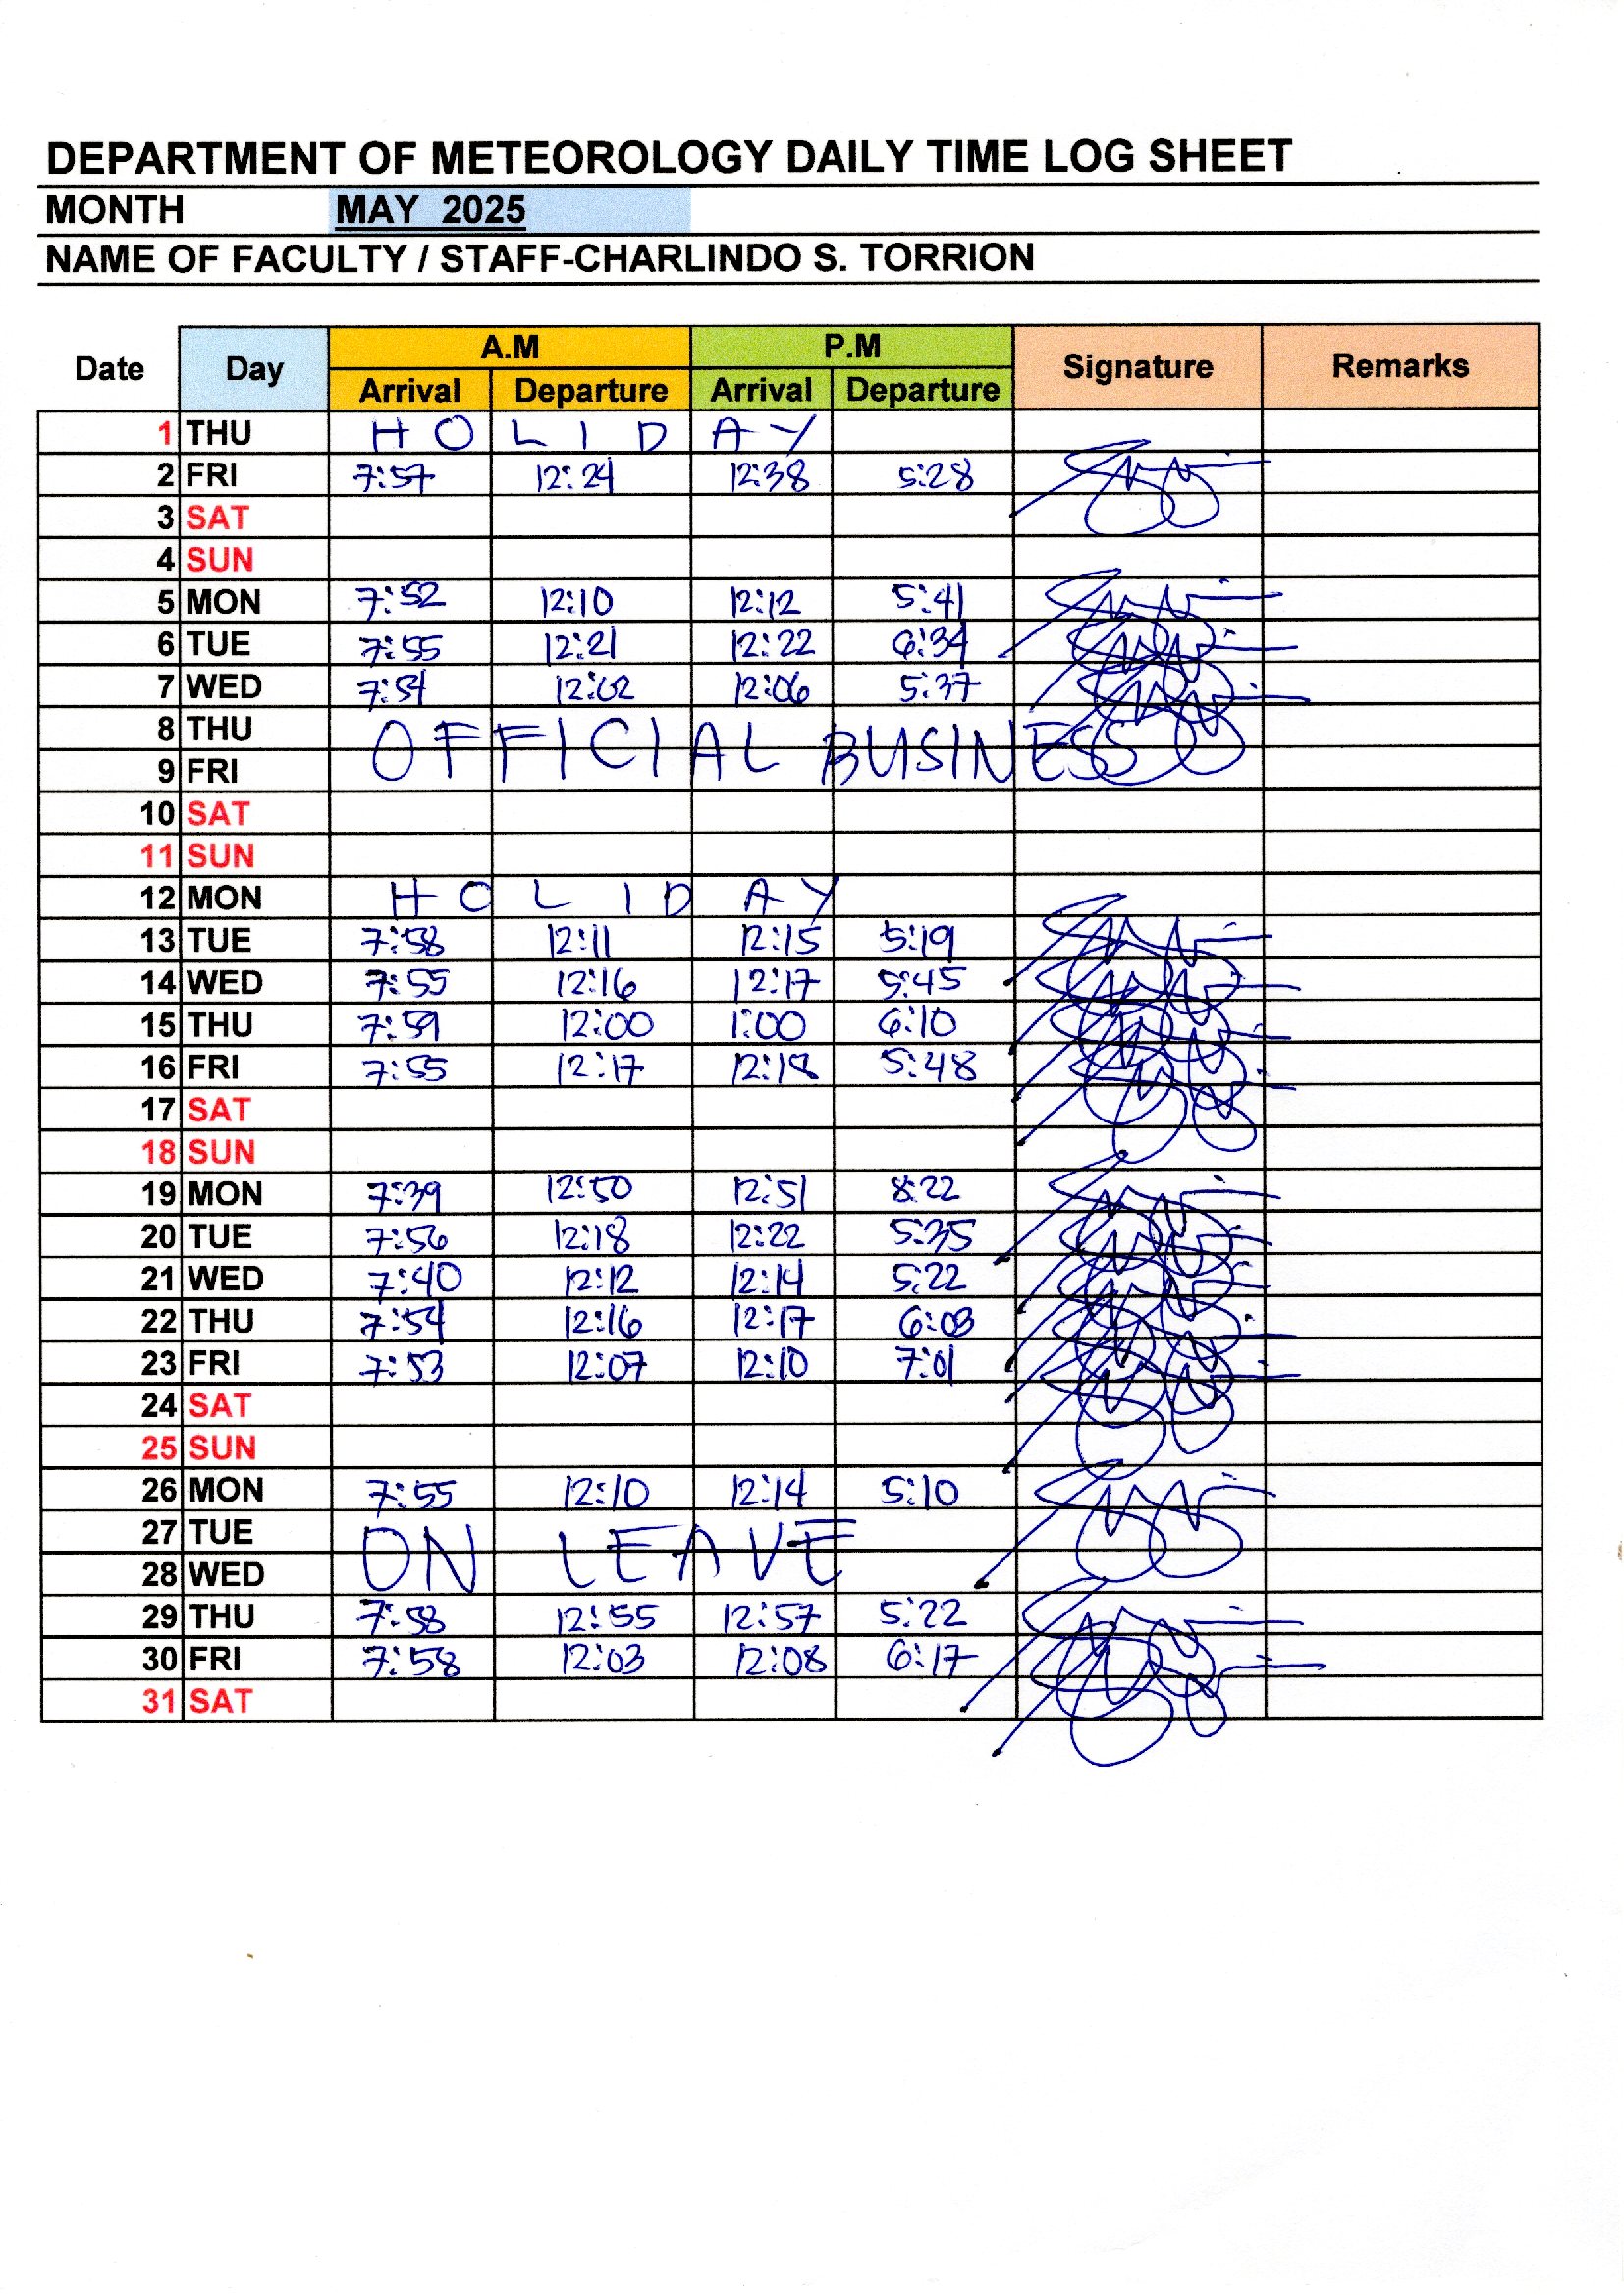 DEPARTMENT OF METEOROLOGY DAILY TIME LOG SHEET
MONTH MAY 2025
NAME OF FACULTY / STAFF-CHARLINDO S. TORRION
Date Day A.M P.M Signature Remarks
Arrival Departure Arrival Departure
1 THU HOLIDAY
2 FRI 7:57 12:24 12:38 5:28
3 SAT
4 SUN
5 MON 7:52 12:10 12:12 5:41
6 TUE 7:55 12:21 12:22 6:34
7 WED 7:54 12:02 12:06 5:37
8 THU OFFICIAL BUSINESS
9 FRI
10 SAT
11 SUN
12 MON HOLIDAY
13 TUE 7:58 12:11 12:15 5:19
14 WED 7:55 12:16 12:17 5:45
15 THU 7:59 12:00 1:00 6:10
16 FRI 7:55 12:17 12:18 5:48
17 SAT
18 SUN
19 MON 7:39 12:50 12:51 8:22
20 TUE 7:56 12:18 12:22 5:35
21 WED 7:40 12:12 12:14 5:22
22 THU 7:54 12:16 12:17 6:03
23 FRI 7:53 12:07 12:10 7:01
24 SAT
25 SUN
26 MON 7:55 12:10 12:14 5:10
27 TUE ON LEAVE
28 WED
29 THU 7:58 12:55 12:57 5:22
30 FRI 7:58 12:03 12:08 6:17
31 SAT